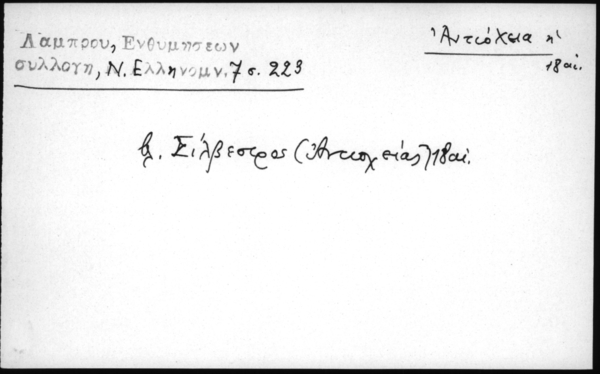 Λαμπρου, Ενθυμησεων
συλλογη, Ν. Ελληνομν. 7 σ. 223
Ἀντιόχεια ἡ
18 αἰ.
βλ. Σίλβεστρος (Ἀντιοχείας) 18 αἰ.